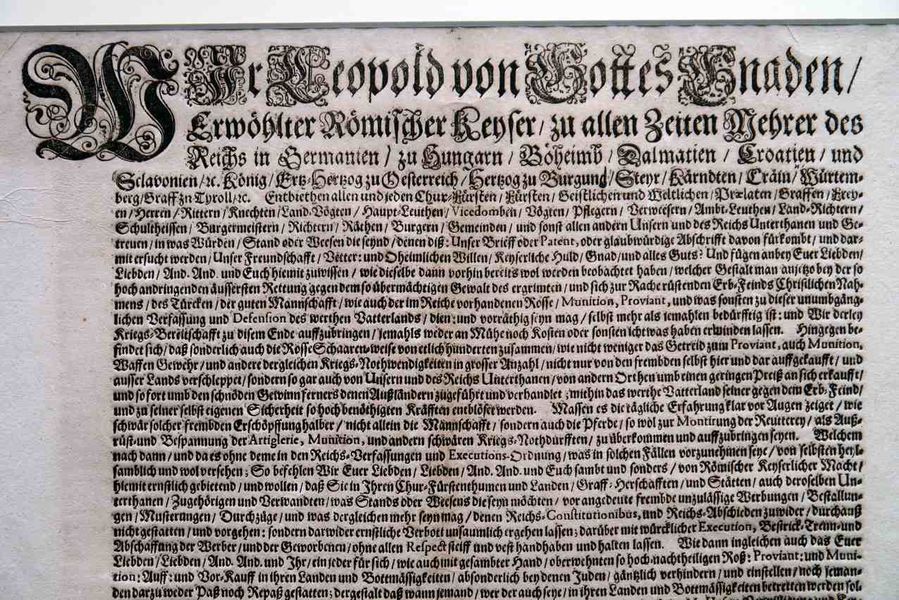 WIr Leopold von Gottes Gnaden /
Erwöhlter Römischer Keyser / zu allen Zeiten Mehrer des
Reichs in Germanien / zu Hungarn / Böheimb / Dalmatien / Croatien / und
Sclavonien / ꝛc. König / Ertz-Hertzog zu Oesterreich / Hertzog zu Burgund / Steyr / Kärndten / Crain / Würtem-
berg / Graff zu Tyroll / ꝛc. Entbiethen allen und jeden Chur-Fürsten / Fürsten / Geistlichen und Weltlichen / Prælaten / Graffen / Frey-
en / Herren / Rittern / Knechten / Land-Vögten / Haupt-Leuthen / Vicedomben / Vögten / Pflegern / Verwesern / Ambt-Leuthen / Land-Richtern /
Schultheissen / Burgermeistern / Richtern / Räthen / Burgern / Gemeinden / und sonst allen andern Unsern und des Reichs Unterthanen und Ge-
treuen / in was Würden / Stand oder Weesen die seynd / denen diß: Unser Brieff oder Patent, oder glaubwürdige Abschrifft davon fürkombt / und dar-
mit ersucht werden / Unser Freundschafft / Vetter: und Oheimlichen Willen / Keyserliche Huld / Gnad / und alles Guts? Und fügen anbey Euer Liebden /
Liebden / And. And. und Euch hiemit zuwissen / wie dieselbe dann vorhin bereits wol werden beobachtet haben / welcher Gestalt man anjetzo bey der so
hoch andringenden äussersten Rettung gegen dem so übermächtigen Gewalt des ergrimten / und sich zur Rache rüstenden Erb-Feinds Christlichen Nah-
mens / des Türcken / der guten Mannschafft / wie auch der im Reiche vorhandenen Rosse / Munition, Proviant, und was sonsten zu dieser unumbgäng-
lichen Verfassung und Defension des werthen Vatterlands / dien: und vorräthig seyn mag / selbst mehr als jemahlen bedürfftig ist: und Wir derley
Kriegs-Bereitschafft zu disem Ende auffzubringen / jemahls weder an Mühe noch Kosten oder sonsten icht was haben erwinden lassen. Hingegen be-
findet sich / daß sonderlich auch die Rosse Schaaren-weise von etlich hunderten zusammen / wie nicht weniger das Getreid zum Proviant, auch Munition,
Waffen Gewehr / und andere dergleichen Kriegs-Nothwendigkeiten in grosser Anzahl / nicht nur von den frembden selbst hier und dar auffgekaufft / und
ausser Lands verschleppet / sondern so gar auch von Unsern und des Reichs Unterthanen / von andern Orthen umb einen geringen Preiß an sich erkaufft /
und so fort umb den schnöden Gewinn ferners denen Außländern zugeführt und verhandlet / mithin das werthe Vatterland seiner gegen dem Erb-Feind /
und zu seiner selbst eigenen Sicherheit so hoch benöthigten Kräfften entblöset werden. Massen es die tägliche Erfahrung klar vor Augen zeiget / wie
schwär solcher frembden Erschöpffung halber / nicht allein die Mannschafft / sondern auch die Pferde / so wol zur Montirung der Reutterey / als Auß-
rüst- und Bespannung der Artiglerie, Munition, und andern schwären Kriegs-Nothdurfften / zu überkommen und auffzubringen seyen. Welchem
nach dann / und da es ohne deme in den Reichs-Verfassungen und Executions-Ordnung / was in solchen Fällen vorzunehmen seye / von selbsten heyl-
samblich und wol versehen; So befehlen Wir Euer Liebden / Liebden / And. And. und Euch sambt und sonders / von Römischer Keyserlicher Macht /
hiemit ernstlich gebietend / und wollen / daß Sie in Ihren Chur-Fürstenthumen und Landen / Graff: Herschafften / und Stätten / auch deroselben Un-
terthanen / Zugehörigen und Verwandten / was Stands oder Weesens die seyn möchten / vor angedeute frembde unzulässige Werbungen / Bestallun-
gen / Musterungen / Durchzüge / und was dergleichen mehr seyn mag / denen Reichs-Constitutionibus, und Reichs-Abschieden zuwider / durchauß
nicht gestatten / und vorgehen: sondern darwider ernstliche Verbott unsaumlich ergehen lassen; darüber mit würcklicher Execution, Bestrick-Trenn-und
Abschaffung der Werber / und der Geworbenen / ohne allen Respect steiff und vest handhaben und halten lassen. Wie dann ingleichen auch das Euer
Liebden / Liebden / And. And. und Ihr / ein jeder für sich / wie auch mit gesambter Hand / oberwehnten so hoch-nachtheiligen Roß: Proviant: und Muni-
tion: Auff: und Vor-Kauff in ihren Landen und Bottmässigkeiten / absonderlich bey denen Juden / gäntzlich verhindern / und einstellen / noch jeman-
den darzu weder Paß noch Repaß gestatten; dergestalt daß wann jemand / wer der auch seye / in ihren Landen und Bottmässigkeiten betretten werden sol-